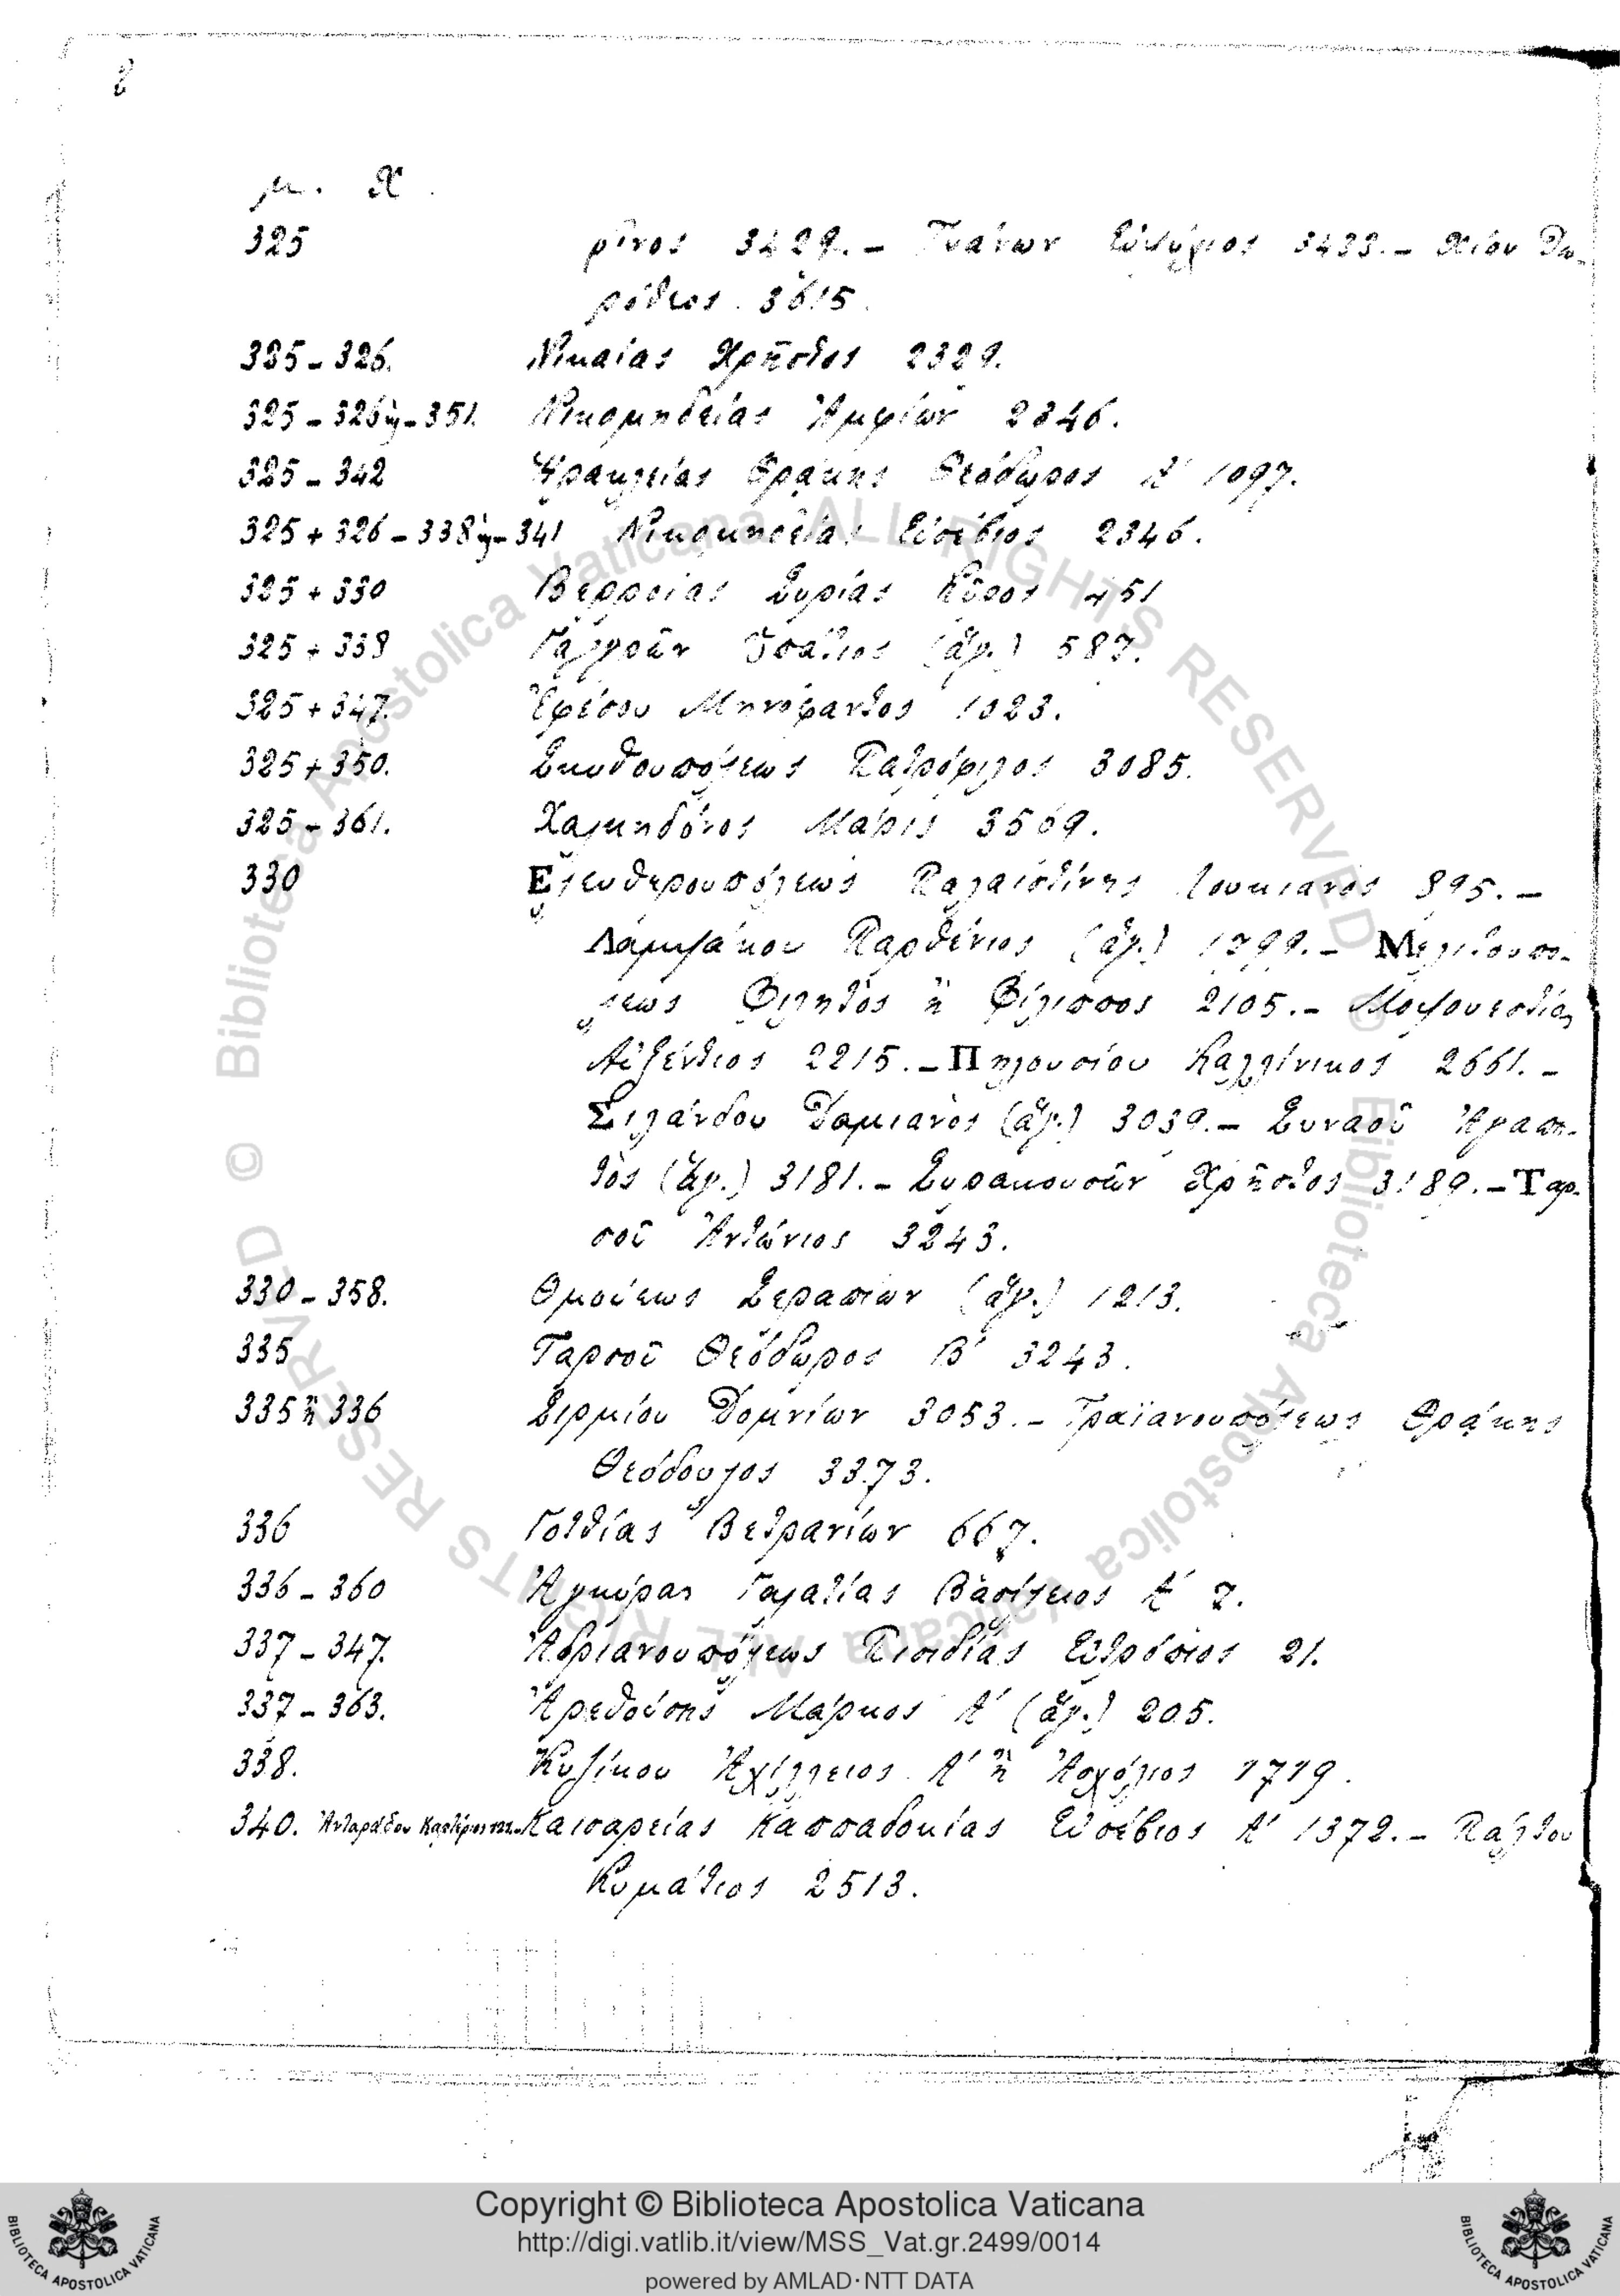 8
μ. Χ.
325 ρῖνος 3429. – Τυάνων Εὐψύχιος 3433. – Χίου Δω-
ρόθεος. 3615.
325 – 326. Νικαίας Χρῆστος 2329.
325 – 326 ἢ – 351. Νικομηδείας Ἀμφίων 2346.
325 – 342 Ἡρακλείας Θράκης Θεόδωρος Α' 1097.
325 + 326 – 338 ἢ – 341 Νικομηδείας Εὐσέβιος 2346.
325 + 330 Βερροίας Συρίας Κῦρος 451
325 + 338 Γαγγρῶν Ὑπάτιος (ἅγ.) 587.
325 + 347. Ἐφέσου Μηνόφαντος 1023.
325 + 350. Σκυθουπόλεως Πατρόφιλος 3085.
325 – 361. Χαλκηδόνος Μάρις 3569.
330 Ἐλευθερουπόλεως Παλαιστίνης Λουκιανὸς 895. –
Λαμψάκου Παρθένιος (ἅγ.) 1799. – Μελιτουπό-
λεως Φιλητὸς ἢ Φίλιππος 2105. – Μοψουεστίας
Αὐξέντιος 2215. – Πηλουσίου Καλλίνικος 2661. –
Σιλάνδου Δαμιανὸς (ἅγ.) 3039. – Συναοῦ Ἀγαπη-
τὸς (ἅγ.) 3181. – Συρακουσῶν Χρῆστος 3189. – Ταρ-
σοῦ Ἀντώνιος 3243.
330 – 358. Θμούεως Σεραπίων (ἅγ.) 1213.
335 Ταρσοῦ Θεόδωρος Β' 3243.
335 ἢ 336 Σιρμίου Δομνίων 3053. – Τραϊανουπόλεως Θράκης
Θεόδουλος 3373.
336 Γοτθίας Βετρανίων 667.
336 – 360 Ἀγκύρας Γαλατίας Βασίλειος Α' 7.
337 – 347. Ἀδριανουπόλεως Πισιδίας Εὐτρόπιος 21.
337 – 363. Ἀρεθούσης Μάρκος Α' (ἅγ.) 205.
338. Κυζίκου Ἀχίλλειος Α' ἢ Ἀσχόλιος 1719.
340. Ἀνταράδου Καρτέριος Καισαρείας Καππαδοκίας Εὐσέβιος Α' 1372. – Πάλτου
Κυμάτιος 2513.
© Biblioteca Apostolica Vaticana ALL RIGHTS RESERVED © Biblioteca Apostolica Vaticana ALL RIGHTS RESERVED
Copyright © Biblioteca Apostolica Vaticana
http://digi.vatlib.it/view/MSS_Vat.gr.2499/0014
powered by AMLAD·NTT DATA
BIBLIOTECA APOSTOLICA VATICANA
BIBLIOTECA APOSTOLICA VATICANA